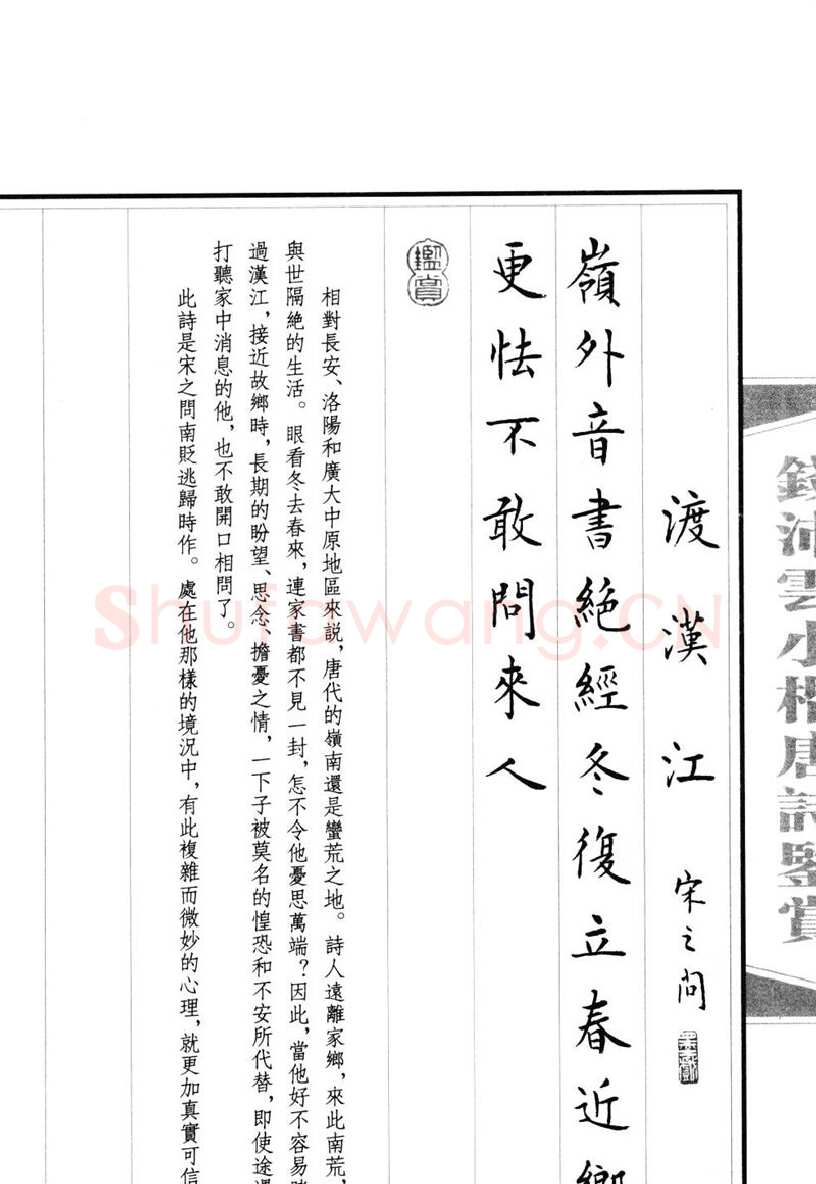 錢沛雲小楷唐詩鑒賞
渡漢江 宋之問
嶺外音書絕經冬復立春近鄉
更怯不敢問來人
鑑賞
相對長安、洛陽和廣大中原地區來説，唐代的嶺南還是蠻荒之地。詩人遠離家鄉，來此南荒，
與世隔絶的生活。眼看冬去春來，連家書都不見一封，怎不令他憂思萬端？因此，當他好不容易
過漢江，接近故鄉時，長期的盼望、思念、擔憂之情，一下子被莫名的惶恐和不安所代替，即使途
打聽家中消息的他，也不敢開口相問了。
此詩是宋之問南貶逃歸時作。處在他那樣的境況中，有此複雜而微妙的心理，就更加真實可信
Shufawang.CN